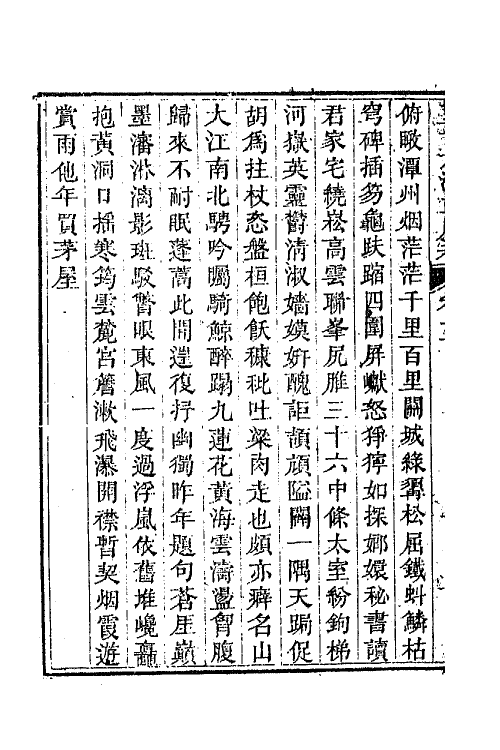 俯瞰潭州烟茫茫千里百里闢城綠翳松屈鐵虯鱗枯
穹碑插笏龜趺踏四圍屏巘怒猙獰如探嫏嬛秘書讀
君家宅繞崧高雲聯峯尻脽三十六中條太室粉鉤梯
河嶽英靈鬱清淑嬙嫫妍醜詎頡頏隘闊一隅天跼促
胡為拄杖恣盤桓飽飫糠秕吐粱肉走也頗亦癖名山
大江南北騁吟矚騎鯨醉蹋九蓮花黃海雲濤盪胷腹
歸來不耐眠蓬蒿此間邅復抒幽獨昨年題句蒼厓巔
墨瀋淋漓影斑駁瞥眼東風一度過浮嵐依舊堆巉矗
抱黃洞口搖寒筠雲麓宮簷漱飛瀑開襟暫契烟霞遊
賞雨他年買茅屋